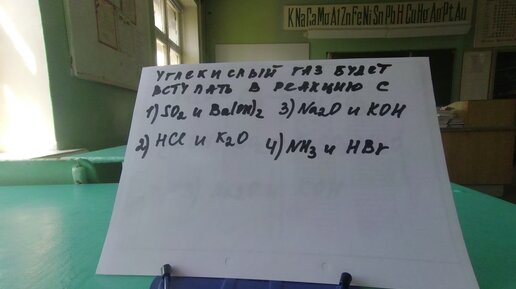 K Na Ca Mg Al Zn Fe Ni Sn Pb H Cu Hg Ag Pt Au
УГЛЕКИСЛЫЙ ГАЗ БУДЕТ
ВСТУПАТЬ В РЕАКЦИЮ С
1) SO2 и Ba(OH)2 3) Na2O и KOH
2) HCl и K2O 4) NH3 и HBr